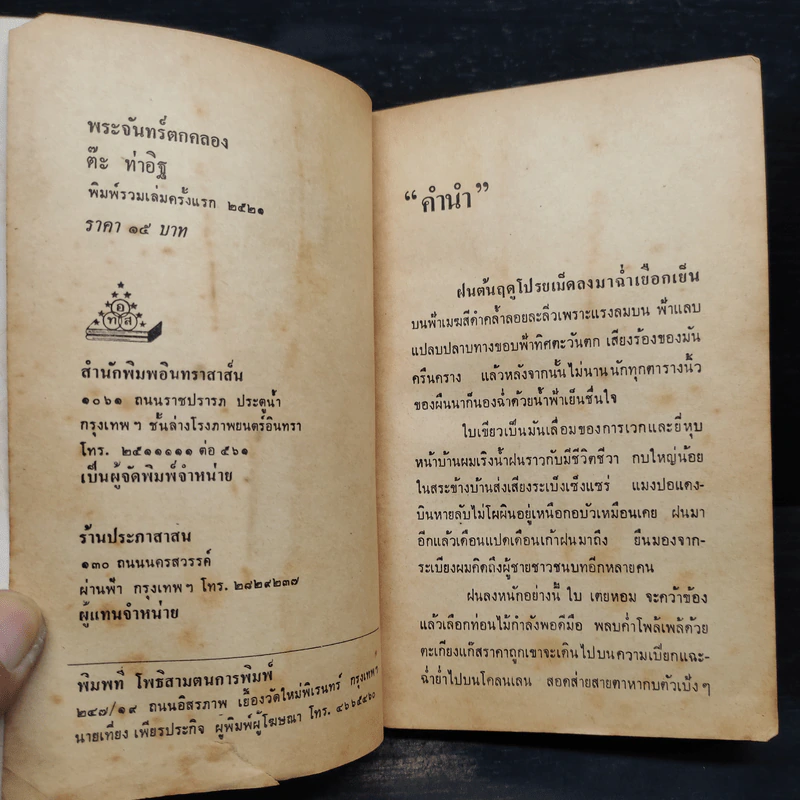 พระจันทร์ตกคลอง
ต๊ะ ท่าอิฐ
พิมพ์รวมเล่มครั้งแรก ๒๕๒๑
ราคา ๑๕ บาท
อ
ท ส
สำนักพิมพ์อินทราสาส์น
๑๐๖๑ ถนนราชปรารภ ประตูน้ำ
กรุงเทพ ฯ ชั้นล่างโรงภาพยนตร์อินทรา
โทร. ๒๕๑๑๑๑๑ ต่อ ๕๖๑
เป็นผู้จัดพิมพ์จำหน่าย
ร้านประภาสาสน
๑๓๐ ถนนนครสวรรค์
ผ่านฟ้า กรุงเทพ ฯ โทร. ๒๘๒๙๒๓๗
ผู้แทนจำหน่าย
พิมพ์ที่ โพธิ์สามต้นการพิมพ์
๒๔๗/๑๙ ถนนอิสรภาพ เยื้องวัดใหม่พิเรนทร์ กรุงเทพฯ
นายเที่ยง เพียรประกิจ ผู้พิมพ์ผู้โฆษณา โทร. ๔๖๖๕๔๖๐
“คำนำ”
ฝนต้นฤดูโปรยเม็ดลงมาฉ่ำเยือกเย็น
บนฟ้าเมฆสีดำคล้ำลอยละลิ่วเพราะแรงลมบน ฟ้าแลบ
แปลบปลาบทางขอบฟ้าทิศตะวันตก เสียงร้องของมัน
ครืนคราง แล้วหลังจากนั้นไม่นานนักทุกตารางนิ้ว
ของผืนนาก็นองฉ่ำด้วยน้ำฟ้าเย็นชื่นใจ
ใบเขียวเป็นมันเลื่อมของการเวกและยี่หุบ
หน้าบ้านผมเริงน้ำฝนราวกับมีชีวิตชีวา กบใหญ่น้อย
ในสระข้างบ้านส่งเสียงระเบ็งเซ็งแซร่ แมงปอแดง-
บินหายลับไม่โผผินอยู่เหนือกอบัวเหมือนเคย ฝนมา
อีกแล้วเดือนแปดเดือนเก้าฝนมาถึง ยืนมองจาก-
ระเบียงผมคิดถึงผู้ชายชาวชนบทอีกหลายคน
ฝนลงหนักอย่างนี้ ใบ เตยหอม จะคว้าข้อง
แล้วเลือกท่อนไม้กำลังพอดีมือ พลบค่ำโพล้เพล้ด้วย
ตะเกียงแก๊สราคาถูกเขาจะเดินไปบนความเปียกแฉะ-
ฉ่ำย่ำไปบนโคลนเลน สอดส่ายสายตาหากบตัวเป้ง ๆ